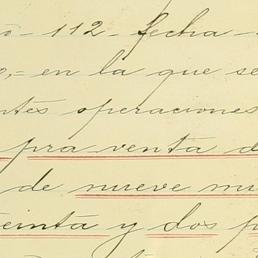 o - 112 - fecha -
o, - en la que se
ntes operaciones
pra venta d
de nueve mi
einta y dos p